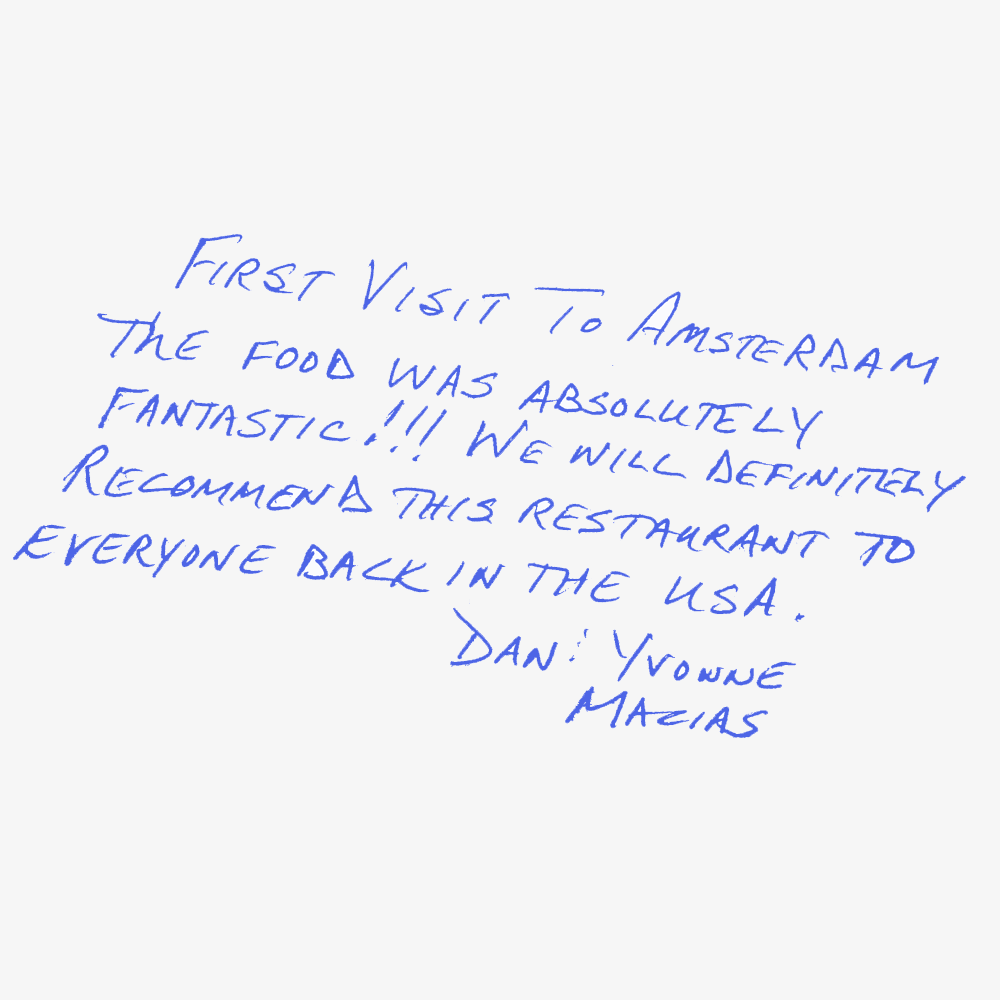 FIRST VISIT TO AMSTERDAM
THE FOOD WAS ABSOLUTELY
FANTASTIC!!! WE WILL DEFINITELY
RECOMMEND THIS RESTAURANT TO
EVERYONE BACK IN THE USA.
DAN & YVONNE
MACIAS